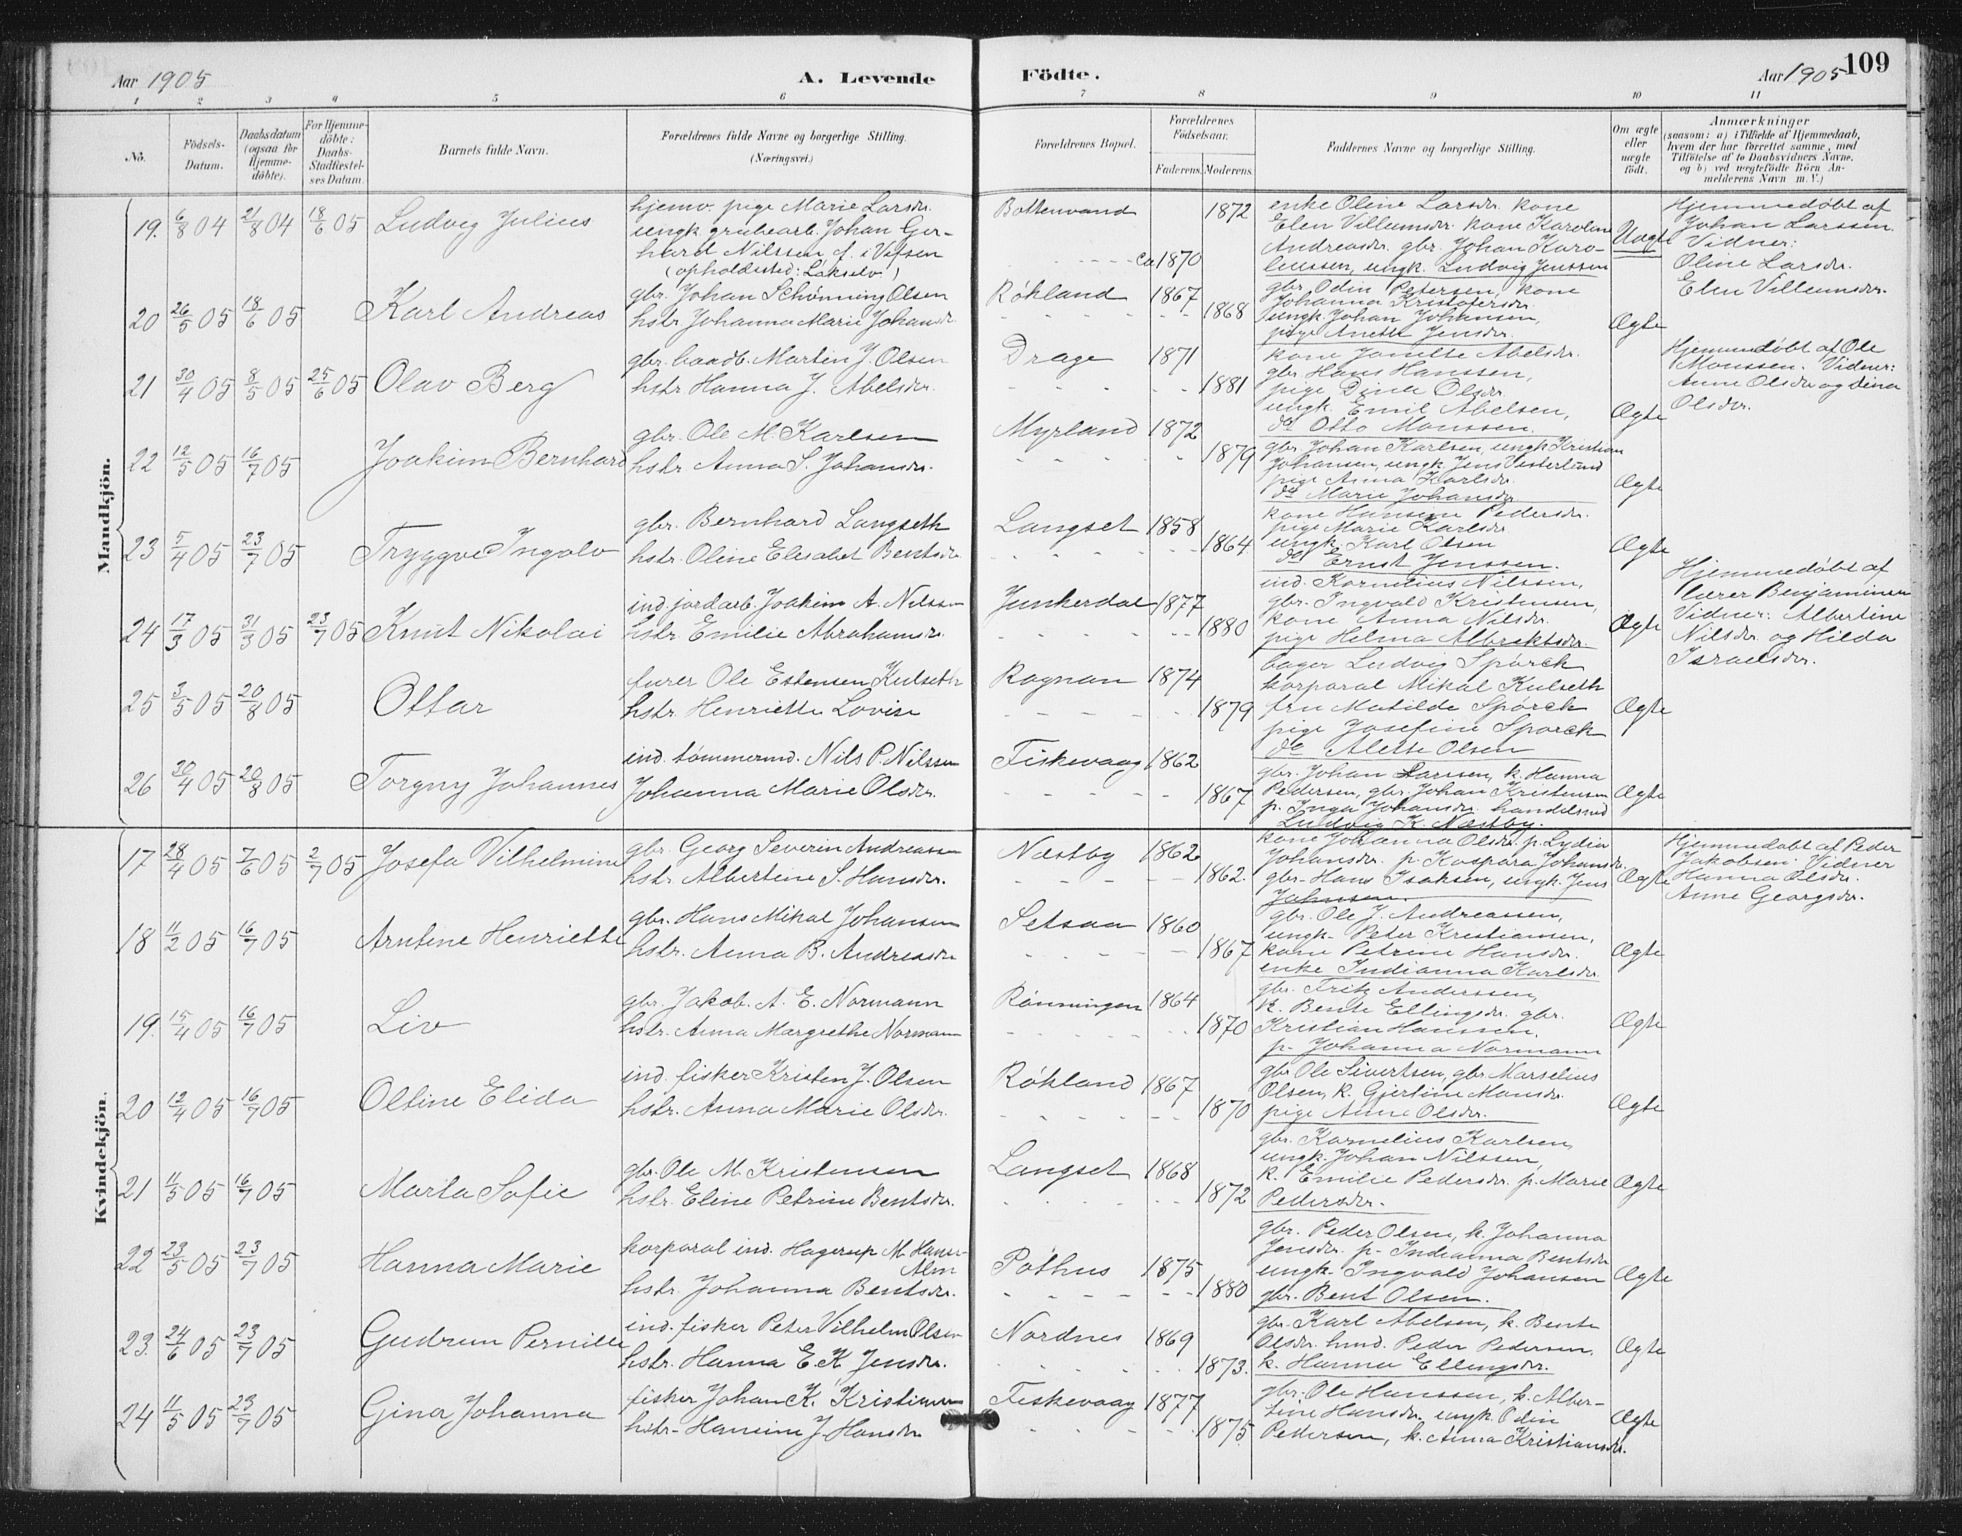 Aar 1905
A. Levende
Födte.
Aar 1905
109
1 2 3 4 5 6 7 8 9 10 11
No.
Födsels-
Datum.
Daabsdatum
(ogsaa for
Hjemme-
döbte).
For Hjemme-
döbte:
Daabs-
Stadfæstel-
ses Datum.
Barnets fulde Navn.
Forældrenes fulde Navne og borgerlige Stilling.
(Næringsvei.)
Forældrenes Bopæl.
Forældrenes
Födselsaar.
Faderens. Moderens.
Faddernes Navne og borgerlige Stilling.
Om ægte
eller
uægte
födt.
Anmærkninger
(saasom: a) i Tilfælde af Hjemmedaab,
hvem der har forrettet samme, med
Tilföielse af to Daabsvidners Navne,
og b) ved uægtefödte Börn An-
melderens Navn m. V.)
Mandkjön.
19. 6/8 04 21/8 04 18/6 05 Ludvig Julius
hjemv. pige Marie Larsdr.
ungk. grubearb. Johan Ger-
hard Nilssen f. i Vefsen
(opholdssted: Lakselv)
Bottenvand 1872
ca 1870
enke Oline Larsdr. kone
Elen Villumsdr. kone Karoline
Andreasdr. gbr. Johan Karo-
liussen, ungk. Ludvig Jenssen
Uægte
Hjemmedøbt af
Johan Larssen.
Vidner:
Oline Larsdr.
Elen Villumsdr.
20 26/5 05 18/6 05 Karl Andreas
gbr. Johan Schønning Olsen
hstr. Johanna Marie Johansdr.
Røkland 1867
1868
gbr. Odin Petersen, kone
Johanna Kristofersdr.
ungk. Johan Johansen,
pige Anette Jensdr.
Ægte
21 30/4 05 8/5 05 25/6 05 Olav Berg
gbr. baadb. Martin J. Olsen
hstr. Hanna J. Abelsdr.
Drage 1871
1881
kone Janette Abelsdr.
gbr. Hans Hanssen,
pige Dina Olsdr.
ungk. Emil Abelsen,
do Otto Monssen.
Ægte
Hjemmedøbt af Ole
Monssen. Vidner:
Anne Olsdr. og Dina
Olsdr.
22 12/5 05 16/7 05 Joakim Bernhard
gbr. Ole M. Karlsen
hstr. Anna S. Johansdr.
Myrland 1872
1879
gbr. Johan Karlsen, ungk. Kristian
Johansen, ungk. Jens Vesterlund
pige Anna Karlsdr.
do Marie Johansdr.
Ægte
23 5/4 05 23/7 05 Tryggve Ingolv
gbr. Bernhard Langseth
hstr. Oline Elisabet Bentsdr.
Langset 1858
1864
kone Hansine Pedersdr.
pige Marie Karlsdr.
ungk. Karl Olsen
do Ernst Jenssen.
Ægte
24 17/3 05 31/3 05 23/7 05 Knut Nikolai
ind. jordarb. Joakim A. Nilssen
hstr. Emilie Abrahamsdr.
Junkerdal 1877
1880
ind. Kornelius Nilssen,
gbr. Ingvald Kristensen,
kone Anna Nilsdr.
pige Helma Albrektsdr.
Ægte
Hjemmedøbt af
lærer Benjaminsen
Vidner: Albertine
Nilsdr. og Hilda
Israelsdr.
25 3/5 05 20/8 05 Ottar
furer Ole Estensen Kulseth
hstr. Henriette Lovise
Rognan 1874
1879
bager Ludvig Spørck
korporal Mikal Kulseth
fru Matilde Spørck
pige Josefine Spørck
do Alette Olsen
Ægte
26 30/4 05 20/8 05 Torgny Johannes
ind. tømmermd. Nils P. Nilssen
Johanna Marie Olsdr.
Fiskevaag 1862
1867
gbr. Johan Larssen, k. Hanna
Pedersen, gbr. Johan Kristensen
p. Inga Johansdr. handelsmd
Ludvig K. Næstby.
Ægte
Kvindekjön.
17 28/4 05 7/6 05 2/7 05 Josefa Vilhelmine
gbr. Georg Severin Andreassen
hstr. Albertine S. Hansdr.
Næstby 1862
1862.
kone Johanna Olsdr. p. Lydia
Johansdr. p. Kaspara Johansdr.
gbr. Hans Isaksen, ungk. Jens
Johnsen.
Ægte
Hjemmedøbt af Peder
Jakobsen. Vidner
Hanna Olsdr.
Anne Georgsdr.
18 11/2 05 16/7 05 Arntine Henriette
gbr. Hans Mikal Johansen
hstr. Anna B. Andreasdr.
Setsaa 1860
1867
gbr. Ole J. Andreassen,
ungk. Peter Kristiansen,
kone Petrine Hansdr.
enke Indianna Karlsdr.
Ægte
19. 15/4 05 16/7 05 Liv
gbr. Jakob A. E. Normann
hstr. Anna Margrethe Normann
Rønningen 1864
1870
gbr. Fritz Anderssen,
k. Bente Ellingsdr. gbr.
Kristian Hanssen,
p. Johanna Normann
Ægte
20 12/4 05 16/7 05 Oltine Elida
ind. fisker Kristen J. Olsen
hstr. Anna Marie Olsdr.
Røkland 1867
1870
gbr Ole Sivertsen, gbr Marselius
Olsen, k. Gjertine Hansdr.
pige Anne Olsdr.
Ægte
21 11/5 05 16/7 05 Marta Sofie
gbr. Ole M. Kristensen
hstr. Eline Petrine Bentsdr.
Langset 1868
1872
gbr. Kornelius Karlsen,
ungk. Johan Nilssen,
k. Emilie Pedersdr. p. Marie
Pedersdr.
Ægte
22 23/5 05 23/7 05 Hanna Marie
korporal ind. Hagerup M. Hans-
Alm
hstr. Johanna Bentsdr.
Pothus 1875
1880
gbr. Peder Olsen, k. Johanna
Jensdr. p. Indianna Bentsdr
ungk. Ingvald Johansen
gbr. Bent Olsen.
Ægte
23. 24/6 05 23/7 05 Gudrun Pernille
ind. fisker Peter Vilhelm Olsen
hstr. Hanna E. K. Jensdr.
Nordnes 1869
1873.
gbr. Karl Abelsen, k. Bente
Olsdr. hmd. Peder Pedersen,
k. Hanna Ellingsdr.
Ægte
24 11/5 05 23/7 05 Gina Johanna
fisker Johan K. Kristiansen
hstr. Hansine J. Hansdr
Fiskevaag 1877
1875.
gbr. Ole Hanssen, k. Alber-
tine Hansdr. ungk. Odin
Pedersen, k. Anna Kristiansdr.
Ægte